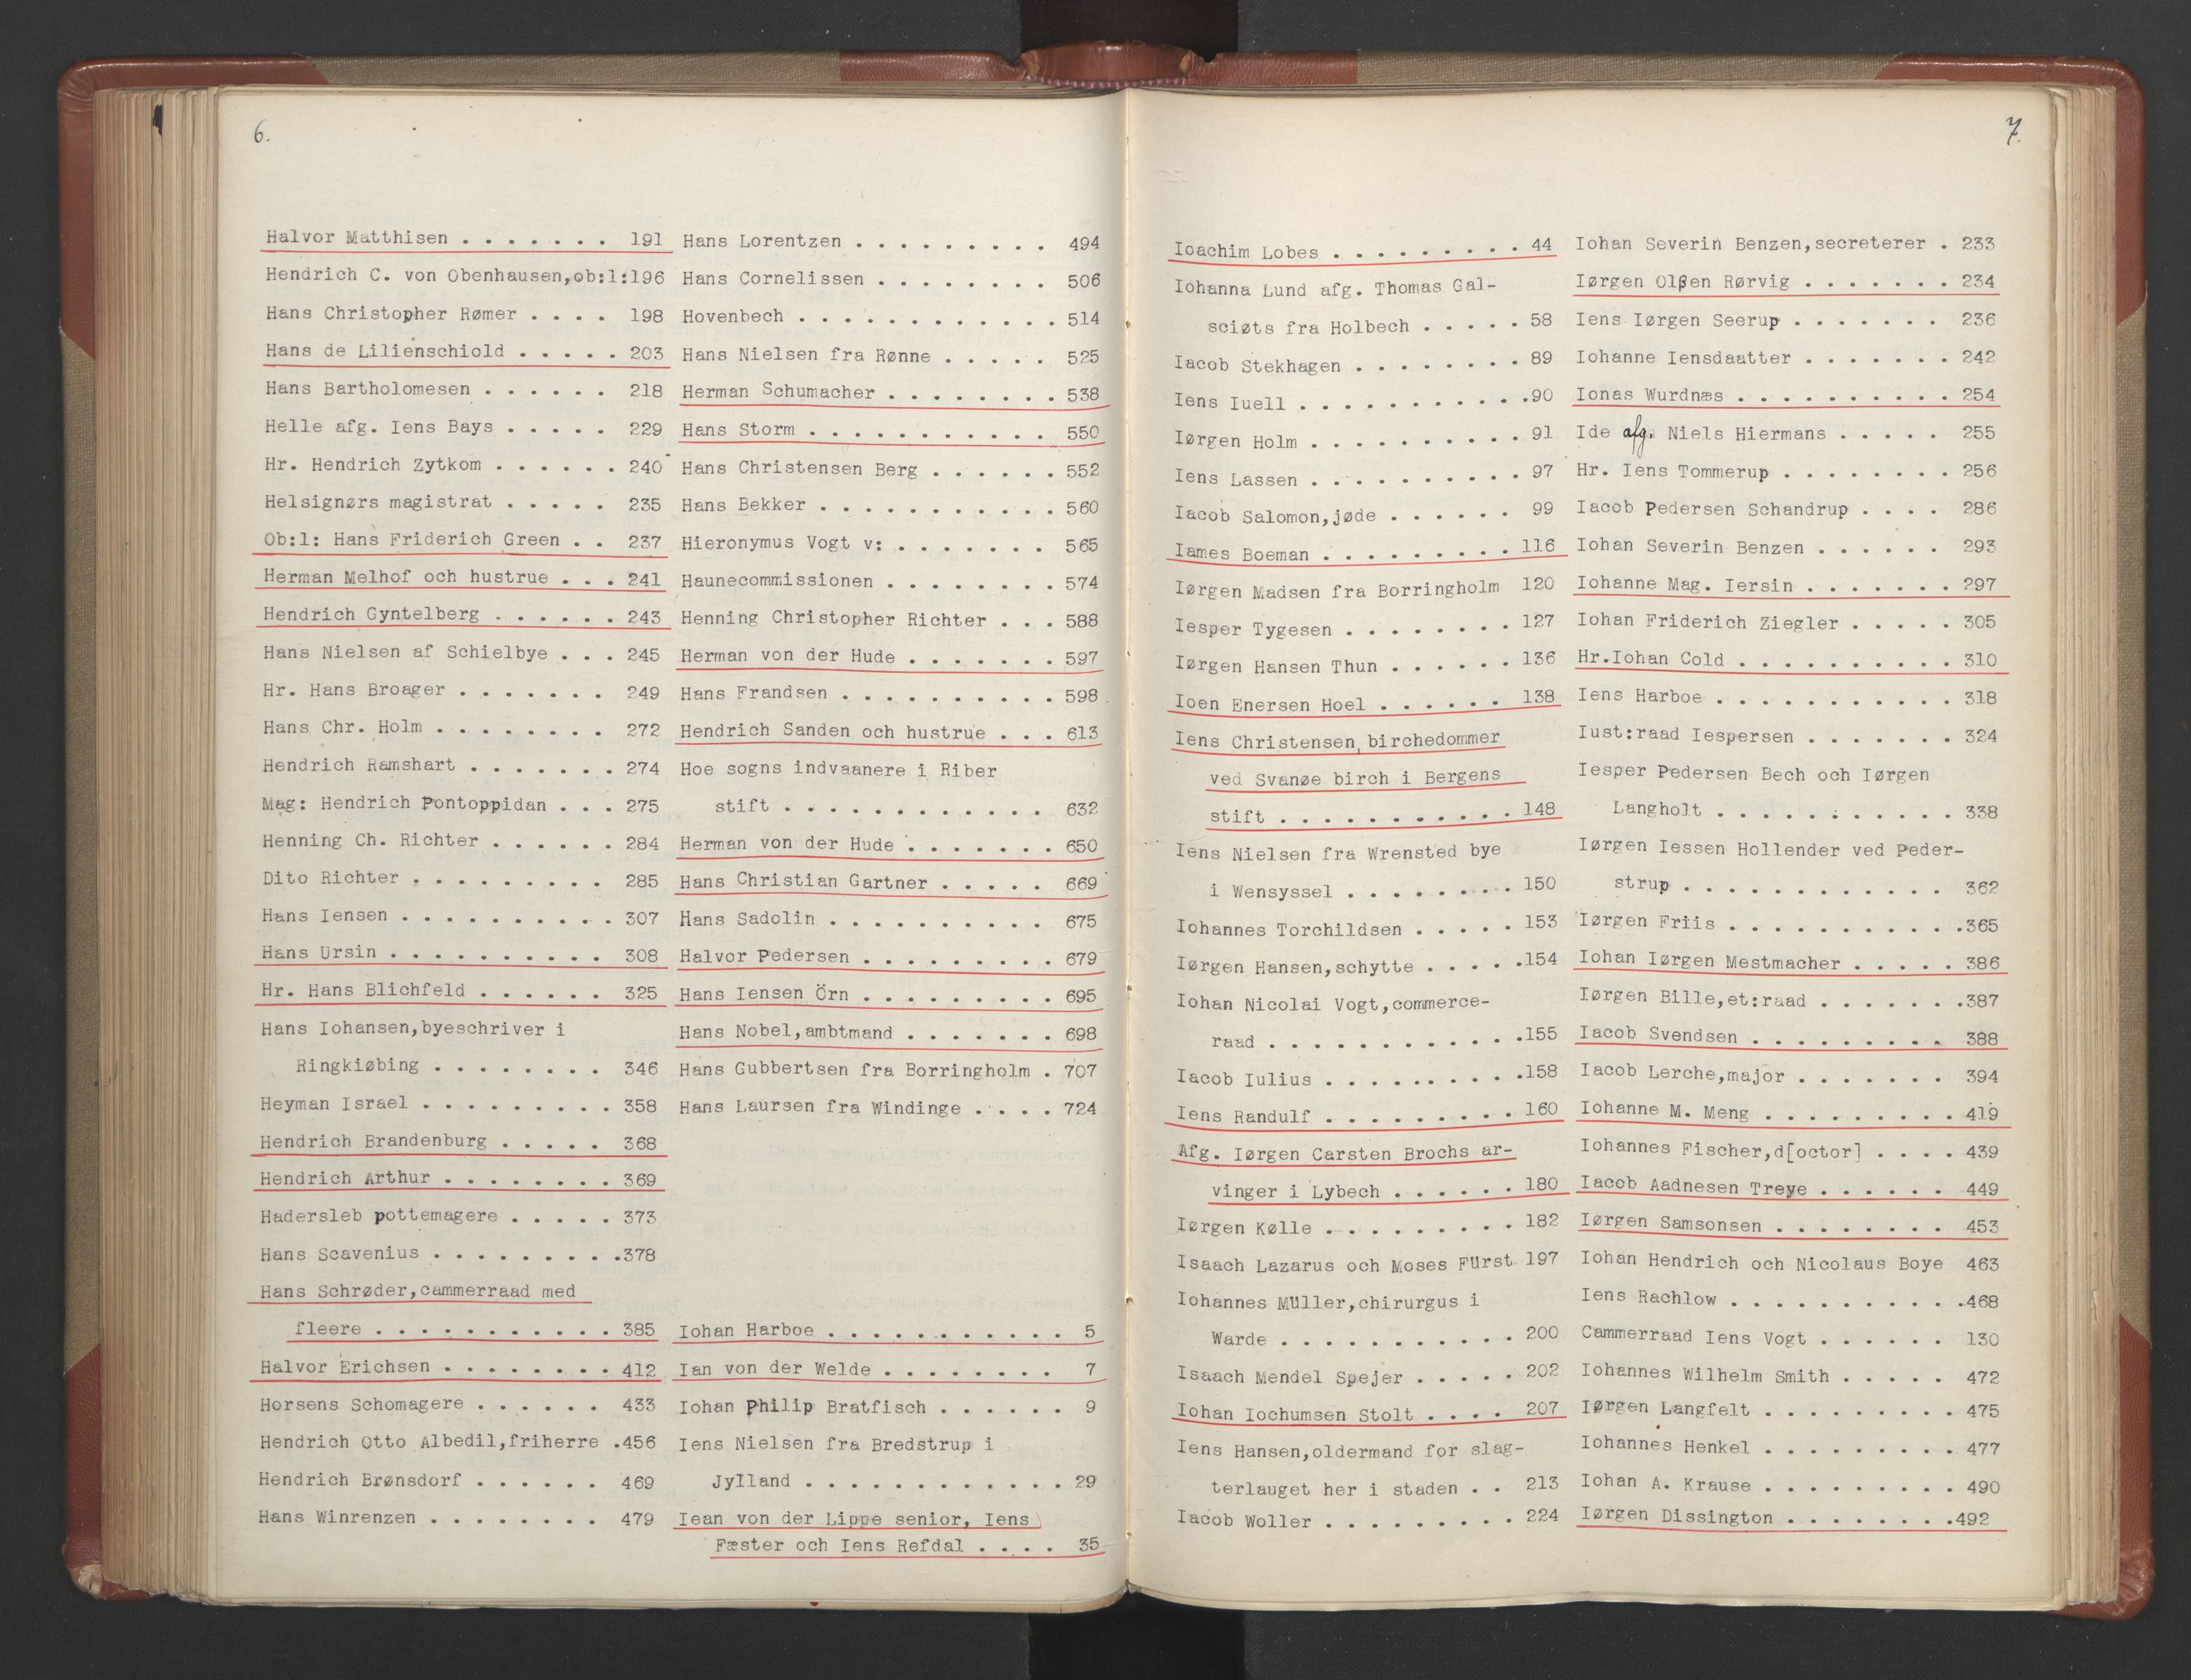 6.
Halvor Matthisen . . . . . . . 191
Hendrich C. von Obenhausen,ob:l:196
Hans Christopher Rømer . . . . 198
Hans de Lilienschiold . . . . . 203
Hans Bartholomesen . . . . . . 218
Helle afg. Iens Bays . . . . . 229
Hr. Hendrich Zytkom . . . . . . 240
Helsignørs magistrat . . . . . 235
Ob:l: Hans Friderich Green . . 237
Herman Melhof och hustrue . . . 241
Hendrich Gyntelberg . . . . . . 243
Hans Nielsen af Schielbye . . . 245
Hr. Hans Broager . . . . . . . 249
Hans Chr. Holm . . . . . . . . 272
Hendrich Ramshart . . . . . . . 274
Mag: Hendrich Pontoppidan . . . 275
Henning Ch. Richter . . . . . . 284
Dito Richter . . . . . . . . . 285
Hans Iensen . . . . . . . . . . 307
Hans Ursin . . . . . . . . . . 308
Hr. Hans Blichfeld . . . . . . 325
Hans Iohansen,byeschriver i
Ringkiøbing . . . . . . . . 346
Heyman Israel . . . . . . . . . 358
Hendrich Brandenburg . . . . . 368
Hendrich Arthur . . . . . . . . 369
Hadersleb pottemagere . . . . . 373
Hans Scavenius . . . . . . . . .378
Hans Schrøder,cammerraad med
fleere . . . . . . . . . . . 385
Halvor Erichsen . . . . . . . . 412
Horsens Schomagere . . . . . . 433
Hendrich Otto Albedil,friherre .456
Hendrich Brønsdorf . . . . . . 469
Hans Winrenzen . . . . . . . . 479
Hans Lorentzen . . . . . . . . . 494
Hans Cornelissen . . . . . . . . 506
Hovenbech . . . . . . . . . . . . 514
Hans Nielsen fra Rønne . . . . . 525
Herman Schumacher . . . . . . . . 538
Hans Storm . . . . . . . . . . . 550
Hans Christensen Berg . . . . . . 552
Hans Bekker . . . . . . . . . . . 560
Hieronymus Vogt v: . . . . . . . 565
Haunecommissionen . . . . . . . . 574
Henning Christopher Richter . . . 588
Herman von der Hude . . . . . . . 597
Hans Frandsen . . . . . . . . . . 598
Hendrich Sanden och hustrue . . . 613
Hoe sogns indvaanere i Riber
stift . . . . . . . . . . . . 632
Herman von der Hude . . . . . . . 650
Hans Christian Gartner . . . . . 669
Hans Sadolin . . . . . . . . . . 675
Halvor Pedersen . . . . . . . . . 679
Hans Iensen Örn . . . . . . . . . 695
Hans Nobel,ambtmand . . . . . . . 698
Hans Gubbertsen fra Borringholm . 707
Hans Laursen fra Windinge . . . . 724
Iohan Harboe . . . . . . . . . . . 5
Ian von der Welde . . . . . . . . 7
Iohan Philip Bratfisch . . . . . . 9
Iens Nielsen fra Bredstrup i
Jylland . . . . . . . . . . . . 29
Iean von der Lippe senior, Iens
Fæster och Iens Refdal . . . . 35
7.
Ioachim Lobes . . . . . . . . . 44
Iohanna Lund afg. Thomas Gal-
sciøts fra Holbech . . . . . 58
Iacob Stekhagen . . . . . . . . 89
Iens Iuell . . . . . . . . . . .90
Iørgen Holm . . . . . . . . . . 91
Iens Lassen . . . . . . . . . . 97
Iacob Salomon,jøde . . . . . . 99
Iames Boeman . . . . . . . . . 116
Iørgen Madsen fra Borringholm 120
Iesper Tygesen . . . . . . . . 127
Iørgen Hansen Thun . . . . . . 136
Ioen Enersen Hoel . . . . . . 138
Iens Christensen, birchedommer
ved Svanøe birch i Bergens
stift . . . . . . . . . . . 148
Iens Nielsen fra Wrensted bye
i Wensyssel . . . . . . . . 150
Iohannes Torchildsen . . . . . 153
Iørgen Hansen,schytte . . . . .154
Iohan Nicolai Vogt,commerce-
raad . . . . . . . . . . . .155
Iacob Iulius . . . . . . . . . .158
Iens Randulf . . . . . . . . . 160
Afg. Iørgen Carsten Brochs ar-
vinger i Lybech . . . . . . 180
Iørgen Kølle . . . . . . . . . 182
Isaach Lazarus och Moses Fürst 197
Iohannes Müller,chirurgus i
Warde . . . . . . . . . . . 200
Isaach Mendel Spejer . . . . . 202
Iohan Iochumsen Stolt . . . . 207
Iens Hansen,oldermand for slag-
terlauget her i staden . . 213
Iacob Woller . . . . . . . . . 224
Iohan Severin Benzen,secreterer . 233
Iørgen Olßen Rørvig . . . . . . . 234
Iens Iørgen Seerup . . . . . . . 236
Iohanne Iensdaatter . . . . . . . 242
Ionas Wurdnæs . . . . . . . . . . 254
Ide afg. Niels Hiermans . . . . . 255
Hr. Iens Tommerup . . . . . . . . 256
Iacob Pedersen Schandrup . . . . 286
Iohan Severin Benzen . . . . . . 293
Iohanne Mag. Iersin . . . . . . . 297
Iohan Friderich Ziegler . . . . . 305
Hr.Iohan Cold . . . . . . . . . . 310
Iens Harboe . . . . . . . . . . . 318
Iust:raad Iespersen . . . . . . . 324
Iesper Pedersen Bech och Iørgen
Langholt . . . . . . . . . . . 338
Iørgen Iessen Hollender ved Peder-
strup . . . . . . . . . . . . 362
Iørgen Friis . . . . . . . . . . .365
Iohan Iørgen Mestmacher . . . . . 386
Iørgen Bille,et:raad . . . . . . .387
Iacob Svendsen . . . . . . . . . 388
Iacob Lerche,major . . . . . . . 394
Iohanne M. Meng . . . . . . . . . 419
Iohannes Fischer,d[octor] . . . . 439
Iacob Aadnesen Treye . . . . . . 449
Iørgen Samsonsen . . . . . . . . 453
Iohan Hendrich och Nicolaus Boye 463
Iens Rachlow . . . . . . . . . . .468
Cammerraad Iens Vogt . . . . . . 130
Iohannes Wilhelm Smith . . . . . 472
Iørgen Langfelt . . . . . . . . . 475
Iohannes Henkel . . . . . . . . . 477
Iohan A. Krause . . . . . . . . . 490
Iørgen Dissington . . . . . . . .492